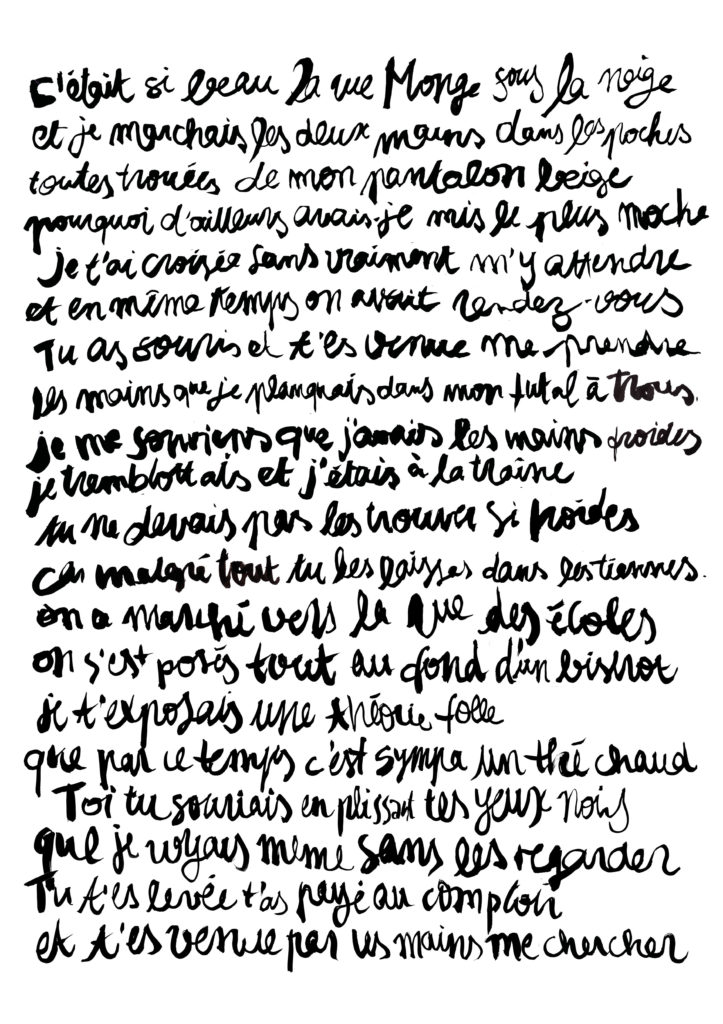 C'était si beau la rue Monge sous la neige
et je marchais les deux mains dans les poches
toutes trouées de mon pantalon beige
pourquoi d'ailleurs avais-je mis le plus moche
je t'ai croisée sans vraiment m'y attendre
et en même temps on avait rendez-vous
Tu as souris et t'es venue me prendre
les mains que je planquais dans mon futal à trous.
je me souviens que j'avais les mains froides
je tremblottais et j'étais à la traîne
tu ne devais pas les trouver si froides
car malgré tout tu les laisses dans les tiennes.
on a marché vers la rue des écoles
on s'est posés tout au fond d'un bistrot
je t'exposais une théorie folle
que par ce temps c'est sympa un thé chaud
Toi tu souriais en plissant tes yeux noirs
que je voyais même sans les regarder
Tu t'es levée t'as payé au comptoir
et t'es venue par les mains me chercher